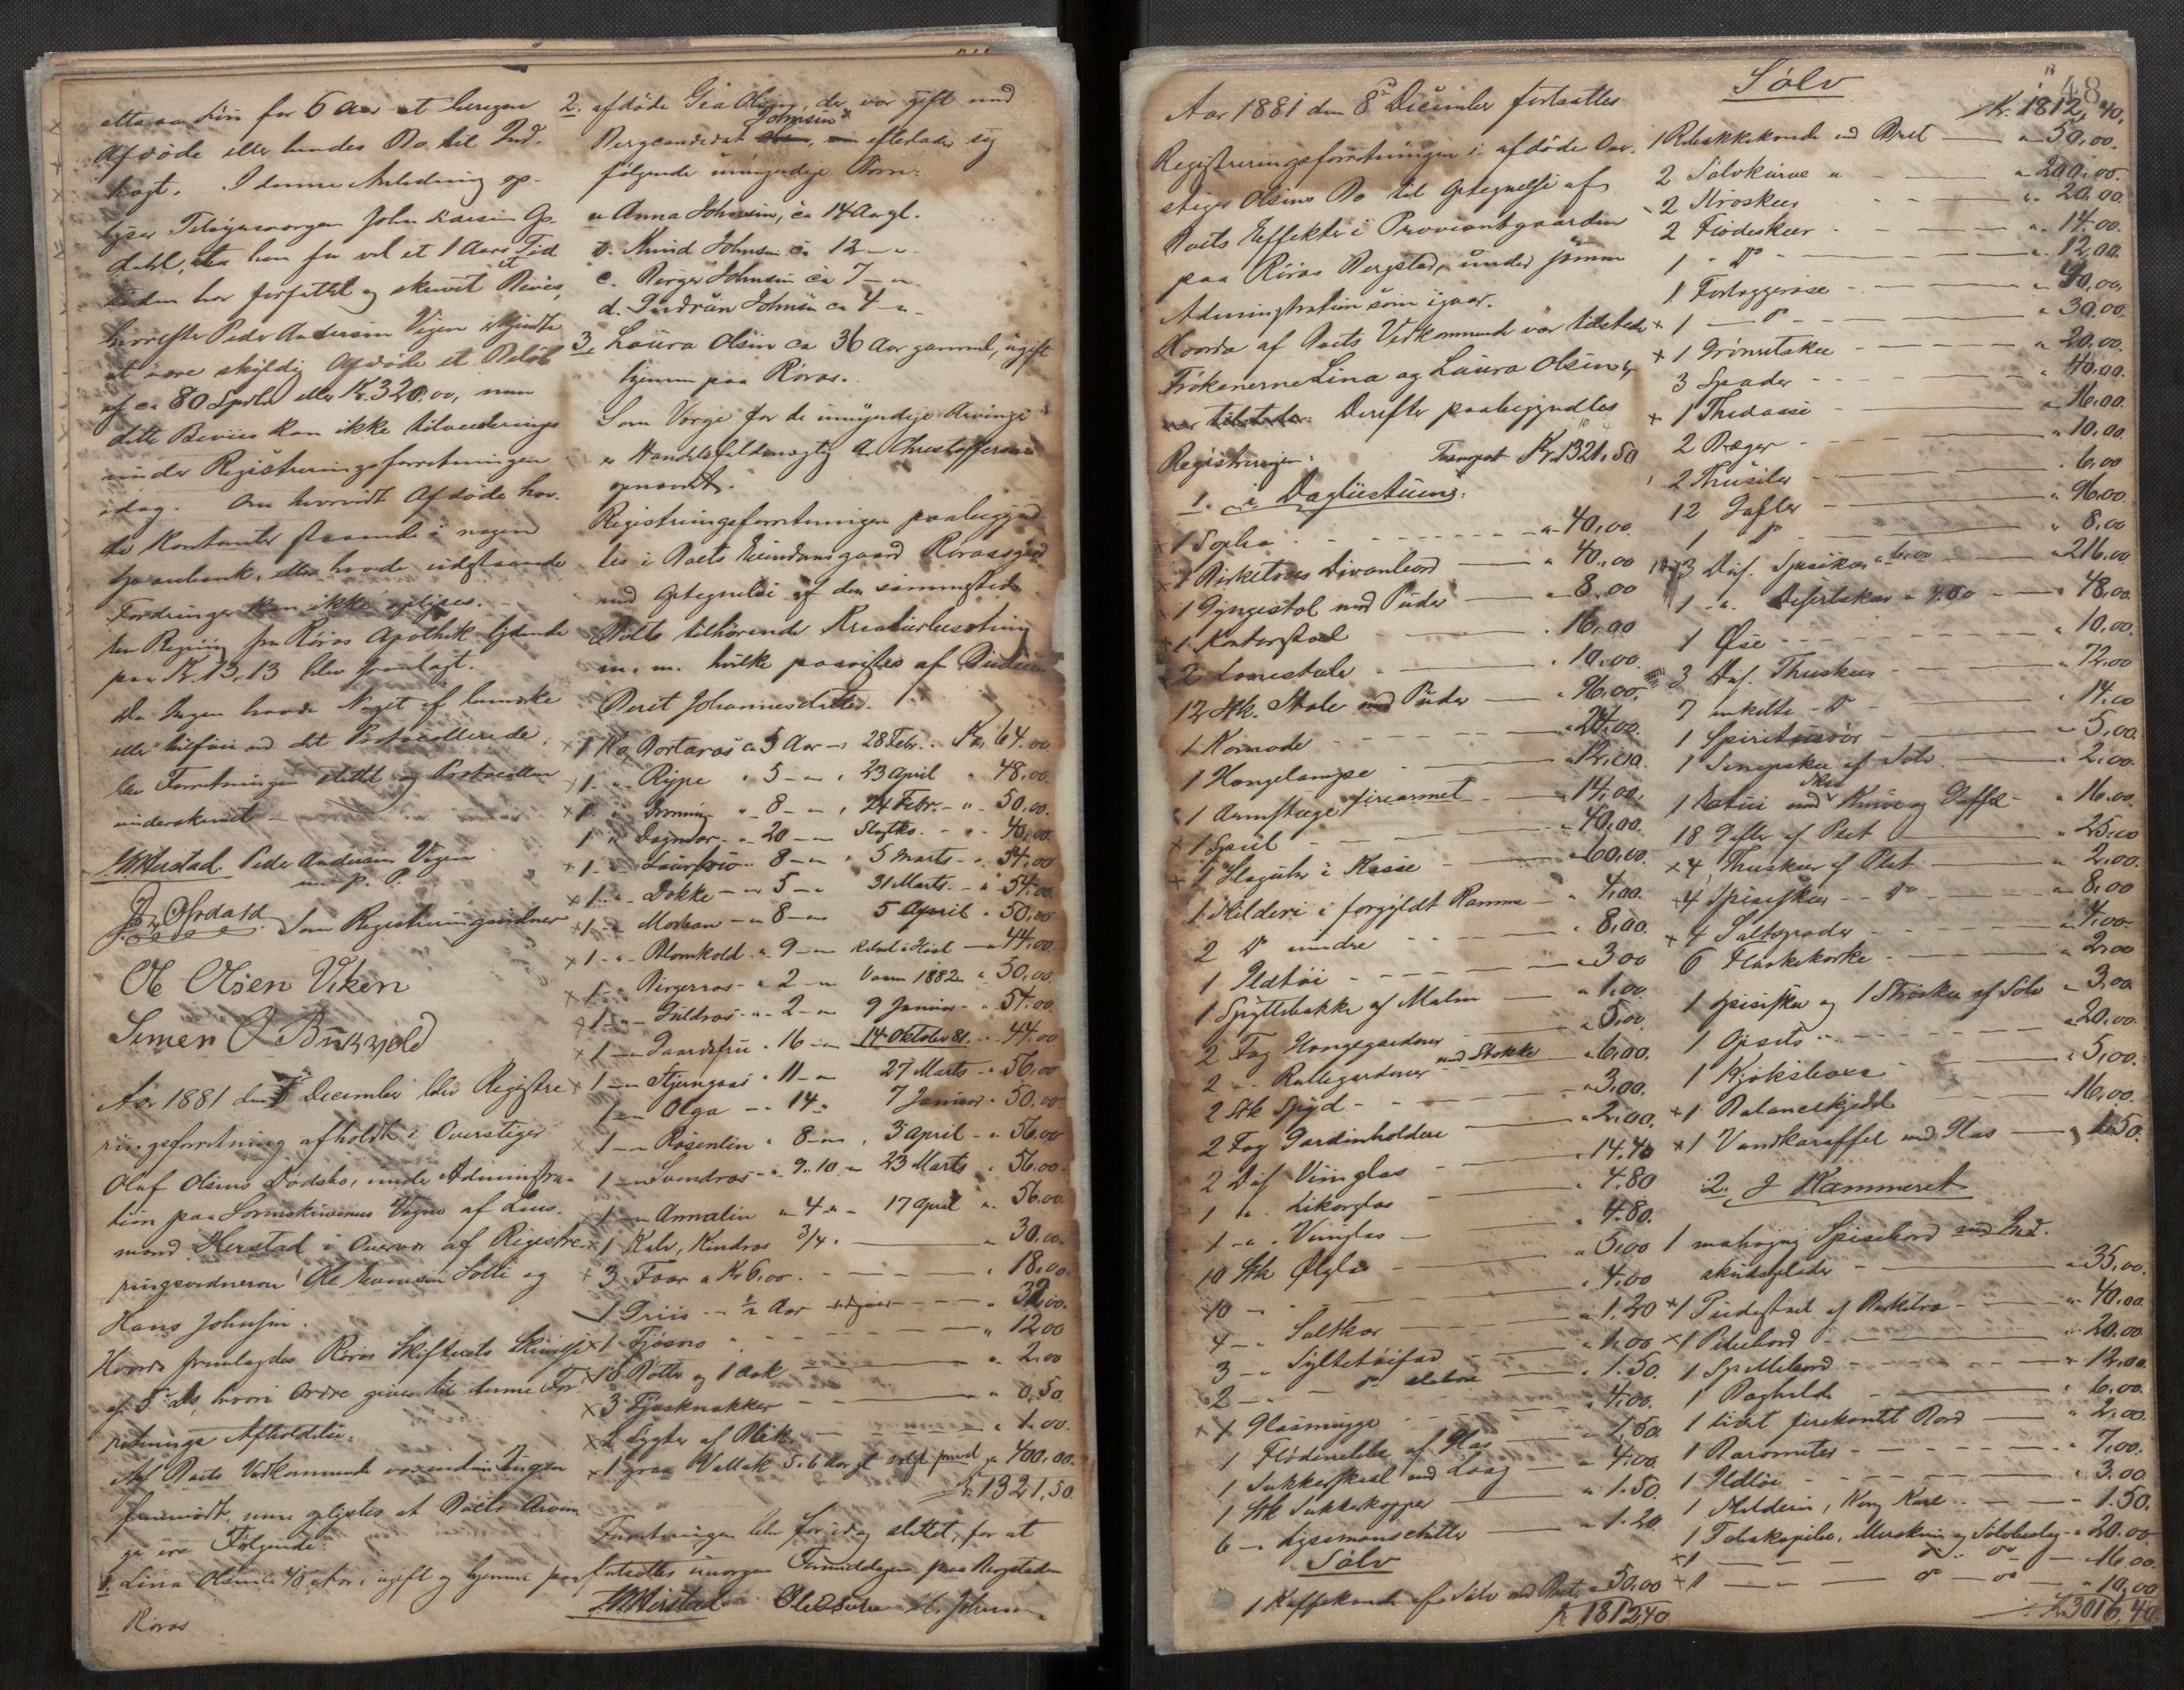 atter en Tiin for 6 Aar at beregne
Afdöde eller hendes Bo til Ind-
tægt. I denne Anledning op-
lyser Tilsynsvorgen John Larsen Op-
dahl, at han for vel et 1 Aars Tid
siden har forfattet og skrevet et Beviis,
hvorefter Peder Andersen Vigen erkjendte
at være skyldig Afdöde et Belöb
af ca 80 Spdlr eller Kr. 320.00, men
dette Beviis kan ikke tilveiebringes
under Registreringsforretningen
idag. Om hvorvidt Afdöde hav-
de Kontanter staaende i nogen
Sparebank, eller havde udestaaende
Fordringer kan ikke oplyses.
En Regning fra Röros Apothek lydende
paa Kr. 13,13 blev fremlagt.
Da Ingen havde Noget at bemærke
eller tilföie ved det Protocollerede,
blev Forretningen sluttet og Protocollen
underskrevet
Herstad. Peder Andersen Vigen
m. p. P.
J. L. Opdahl Som Registreringsvidner
Ole Olsen Viken
Simen O
Aar 1881 den 7de December blev Registre-
ringsforretning afholdt i Overstiger
Oluf Olsens Dödsbo, under Administra-
tion paa Sorenskriverens Vegne af Lens-
mand Herstad i Overvær af Registre-
ringsvidnerne Ole Evensen Solli og
Hans Johnsen.
Hvorda fremlagdes Röros Skifterets Skrivelse
af 5 ds, hvori Ordre gives til denne For-
retnings Afholdelse.
Af Boets Vedkommende var endnu Ingen
fremmödt, men oplystes at Boets Arvin-
ger ere Fölgende:
1. Lina Olsen ca 40 Aar, ugift og hjemme paa
Röros
2. afdöde Gea Olsen, der var gift med
Bergcandidat Johnsen efterlader sig
følgende umyndige Börn:
a Anna Johnsen, ca 14 Aar gl.
b. Knud Johnsen ca 12 - "
c. Birger Johnsen ca 7 - "
d. Gudrun Johnsen ca 4 - "
3. Laura Olsen ca 36 Aar gammel, ugift
hjemme paa Röros.
Som Verge for de umyndige Arvinge
er Handelsfuldmægtig A. Christoffersen
opnævnt.
Registreringsforretningen paabegynd-
tes i Boets Eiendomsgaard Röraasgård
med Optegnelse af den sammesteds
Boets tilhörende Kreaturbesetning
m. m. hvilke paavistes af Budeien
Berit Johannesdatter.
x 1 Ko, Dortaros ca 5 Aar - 28 Febr. Kr. 64.00
x 1 - " Rype " 5 - " " 23 April " 48.00.
x 1 " Dronning " 8 - " " 24 Febr. - " 50.00.
1 " Dagmar - " 20 - " Slagtko. - " 40.00.
x 1 - " - 8 - " " 5 Marts - " 54.00
x 1 - " Dokke - " 5 - " 31 Marts - " 54.00
x 1 - " - " 8 - " 5 April " 50,00
x 1 - " Blomkold " 9 - " - " 44.00
x 1 - " Birgeros - " 2 - " Vaaren 1882 " 50,00.
x 1 - " Guldros - " - 2 - " 9 Januar - " 54.00.
x 1 - " Gaardsfru " 16 - " 14 Oktober 81. " 44.00
x 1 - " Stjerngaas " 11 - " 27 Marts " 56.00
1 - " Olga - " 14 " 7 Januar " 50.00
x 1 - " Rosenlin " 8 - " 3 April - " 56.00
1 - " Svendros - " 9 " 10 - 23 Marts " 56.00.
x 1 - " Annalin " 4 " - 17 April " 56.00
x 1 Kalv, 3/4 " - " 30,00.
x 3 Faar a Kr 6,00. - " 18,00.
1 Griis - - 1/2 Aar - - " 32,00.
x 1 - " 12 00
x 18 Bötter og 1 Ask - " 2.00
x 3 Fjøskrakker - - " 0,50.
x 2 Lygter af Blik - " 1.00.
x 1 graa Vallak 5. 6 Aar gl " 400,00.
Kr. 1321,50.
Forretningen blev for idag sluttet, for at
fortsættes imorgen Formiddagen paa Bergstaden
Herstad Ole E Solli H. Johnsen
48
Aar 1881 den 8de December fortsattes
Registreringsforretningen i afdöde Over-
stiger Olsens Bo til Optegnelse af
Boets Effekter i Proviantgaarden
paa Röros Bergstad, under samme
Administration som igaar.
Hvorda af Boets Vedkommende var tilstede
Frökenerne Lina og Laura Olsen
var tilstede. Derefter paabegyndtes
Registreringen: Transport Kr. 1321.50
1. i Daglistuen:
x 1 Sopha - " 40,00.
x 1 Birketræes Divanbord - " 40.,00
1 Gyngestol med Puder - " 8,00
x 1 Kontorstol - " 16,00
2 Lænestole - " 10.00.
12 Stk. Stole med Puder - " 96.00.
1 Komode - " 24.00.
1 Hængelampe - " 12,00.
1 Armstage firearmet - " 14,00.
x 1 Speil - " 40,00.
x 1 Slaguhr i Kasse - " 60,00.
1 Skilderi i forgyldt Ramme - " 4,00.
2 Do mindre - " 8,00.
1 Ildtöi - " 3 00
1 Spyttebakke af Malm - " 1.00.
2 Fag Hængegardiner - " 5,00
2 - " Rullegardiner med Stokke " 6,00.
2 Stk Spyd - " 3,00.
2 Fag Gardinholdere - " 2.00.
2 Dus Viinglas - " 14.40
1 " Likörglas - " 4.80
1 - " Viinglas - " 4.80.
10 Stk Ølglas - " 5,00
10 - " - " 4.00
4 - " Saltkar - " 1,20
3 - " Syltetöifad - " 1.00
2 - " Do - " 1.50.
x 1 Glasmugge - " 4.00.
1 Flödemelk af Glas - " 1,50.
1 Sukkerskaal med Laag - " 4.00
1 Stk Sukkerkopper - " 1.50.
6 - " Lysemanschetter - " 1.20
Sölv
1 Kaffekande af Sölv med Bret " 50,00
Kr. 1812,40
Sölv
Kr. 1812,40.
1 kande med Bret - " 50,00.
2 Sölvkurve " - " 200,00.
2 Ströskeer - " 20,00
2 Flödeskeer - " 14.00.
1 " Do - " 12,00.
1 Forlæggerøse - " 40,00.
x 1 - Do - " 30.00.
x 1 Grönsatskee - " 20.00.
3 Spader - " 40.00.
x 1 Thedaase - " 16.00.
2 Bæger - " 10.00.
2 Thesiler - " 6,00
12 Gafler - " 96.00.
1 Do - " 8,00
3 Dus. Spiseskeer a 6,00 - " 216.00.
1 - " Desertskeer a 4.00 - " 48,00.
1 Øse - " 10.00.
3 Dus. Theskeer - " 72.00
7 enkelte - Do - " 14.00
1 - " 5,00.
1 Senepskee af Sölv - " 2.00.
1 Etui med Skee Kniv og Gaffel - " 16.00.
18 Gafler af Plet - " 25,00
x 4 Theskeer af Plet - " 2.00.
x 4 Spiseskeer - - Do - " 8,00
x 4 Saltspader - " 4,00.
6 Flaskekorke - " 2,00
1 Spiseskee og 1 Ströskee af Sölv " 3,00
1 Opsats - " 20,00.
1 - " 5,00.
x 1 Balanceskjedel - " 16,00.
x 1 Vandkaraffel med Glas - " 1.50.
2. I Kammeret
1 mahogny Spisebord med Ind-
skudsplader - " 35,00.
x 1 Piedestal af Birketræ - " 40,00.
x 1 Pibebord - " 20.00
1 Spillebord - " 12,00.
1 Boghylde - " 6.00.
1 lidet firekantet Bord - " 2,00.
1 Barometer - " 7,00.
1 Ildtöi - " 3.00
1 Skilderi, Kong Karl - " 1.50.
1 Tobakspibe, Merskum og Sölvbeslag - " 20.00
x 1 - - Do - Do - " 16,00.
x 1 - - Do - Do - " 10,00
Kr. 3016,40